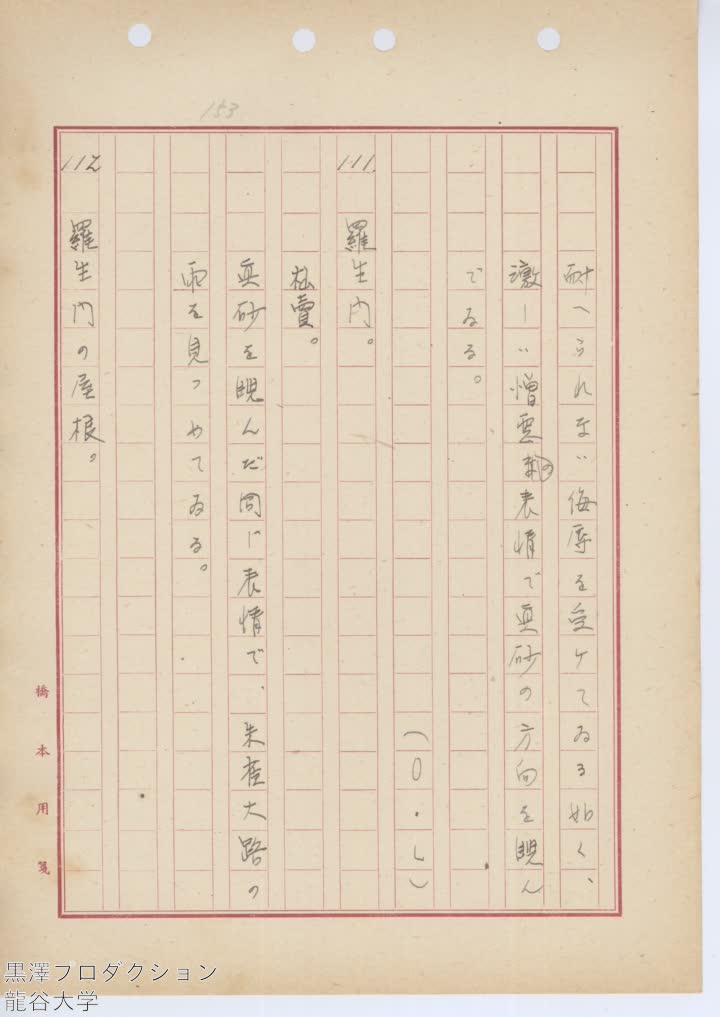 153
耐へられない侮辱を受けてゐる如く、
激しい憎悪の表情で真砂の方向を睨ん
でゐる。
(O・L)
111. 羅生門。
杣賣。
真砂を睨んだ同じ表情で、朱雀大路の
雨を見つめてゐる。
112 羅生門の屋根。
橋本用箋
黒澤プロダクション
龍谷大学